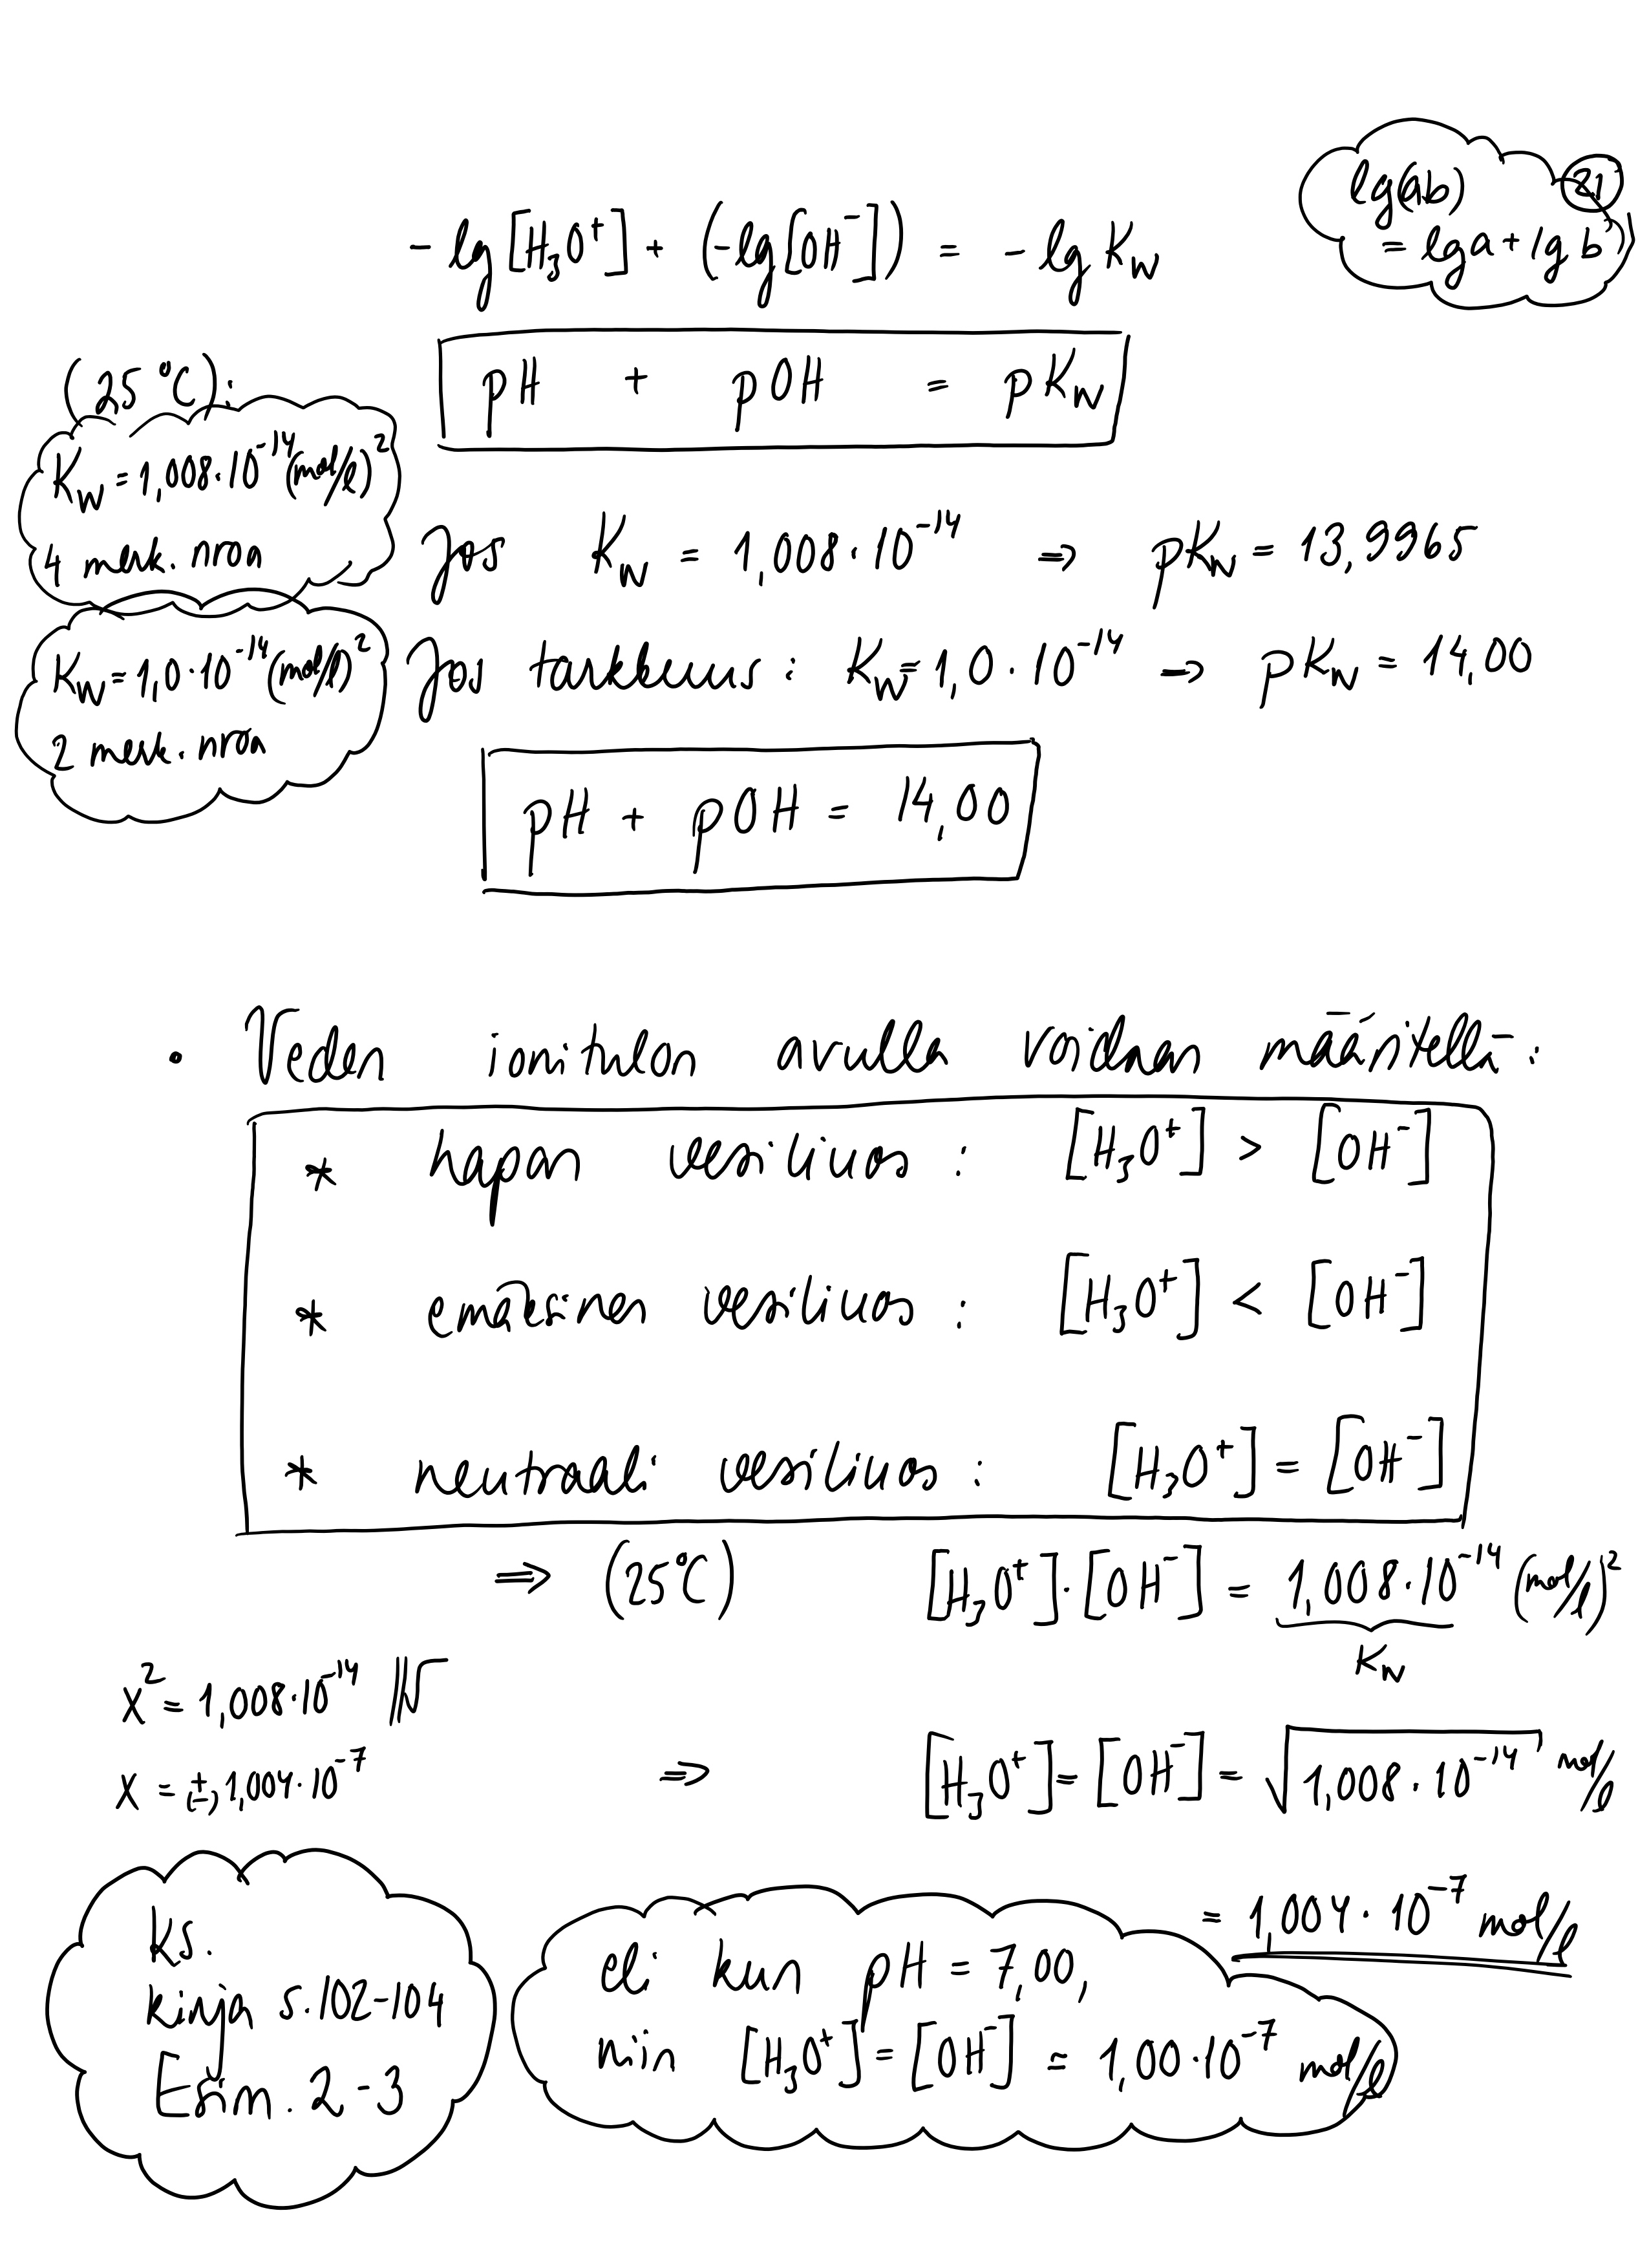 lg(ab)
21
= lg a + lg b
-lg[H₃O⁺] + (-lg[OH⁻]) = -lg Kw
pH + pOH = pKw
(25 °C):
Kw = 1,008·10⁻¹⁴ (mol/l)²
4 merk. nroa
Jos Kw = 1,008·10⁻¹⁴ ⇒ pKw = 13,9965
Kw = 1,0·10⁻¹⁴ (mol/l)²
2 merk. nroa
Jos tarkkuus: Kw = 1,0·10⁻¹⁴ ⇒ pKw = 14,00
pH + pOH = 14,00
• Veden ionitulon avulla voidaan määritellä:
* hapan vesiliuos: [H₃O⁺] > [OH⁻]
* emäksinen vesiliuos: [H₃O⁺] < [OH⁻]
* neutraali vesiliuos: [H₃O⁺] = [OH⁻]
⇒ (25 °C) [H₃O⁺]·[OH⁻] = 1,008·10⁻¹⁴ (mol/l)²
Kw
x² = 1,008·10⁻¹⁴ ||√
x = (±) 1,004·10⁻⁷
⇒ [H₃O⁺] = [OH⁻] = √1,008·10⁻¹⁴ mol/l
= 1,004·10⁻⁷ mol/l
Ks.
kirja s. 102-104
Esim. 2-3
eli kun pH = 7,00,
niin [H₃O⁺] = [OH⁻] = 1,00·10⁻⁷ mol/l